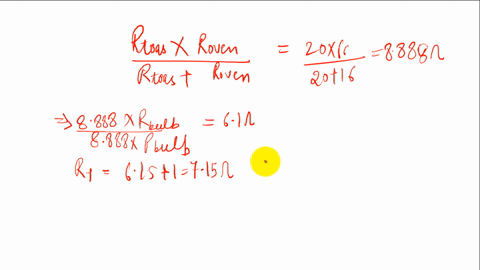 Rtoas × Roven / Rtoas + Roven = 20×16 / 20+16 = 8.888Ω
⇒ 8.888 × Rbulb / 8.888 × Rbulb = 6.1Ω
RT = 6.15 + 1 = 7.15Ω